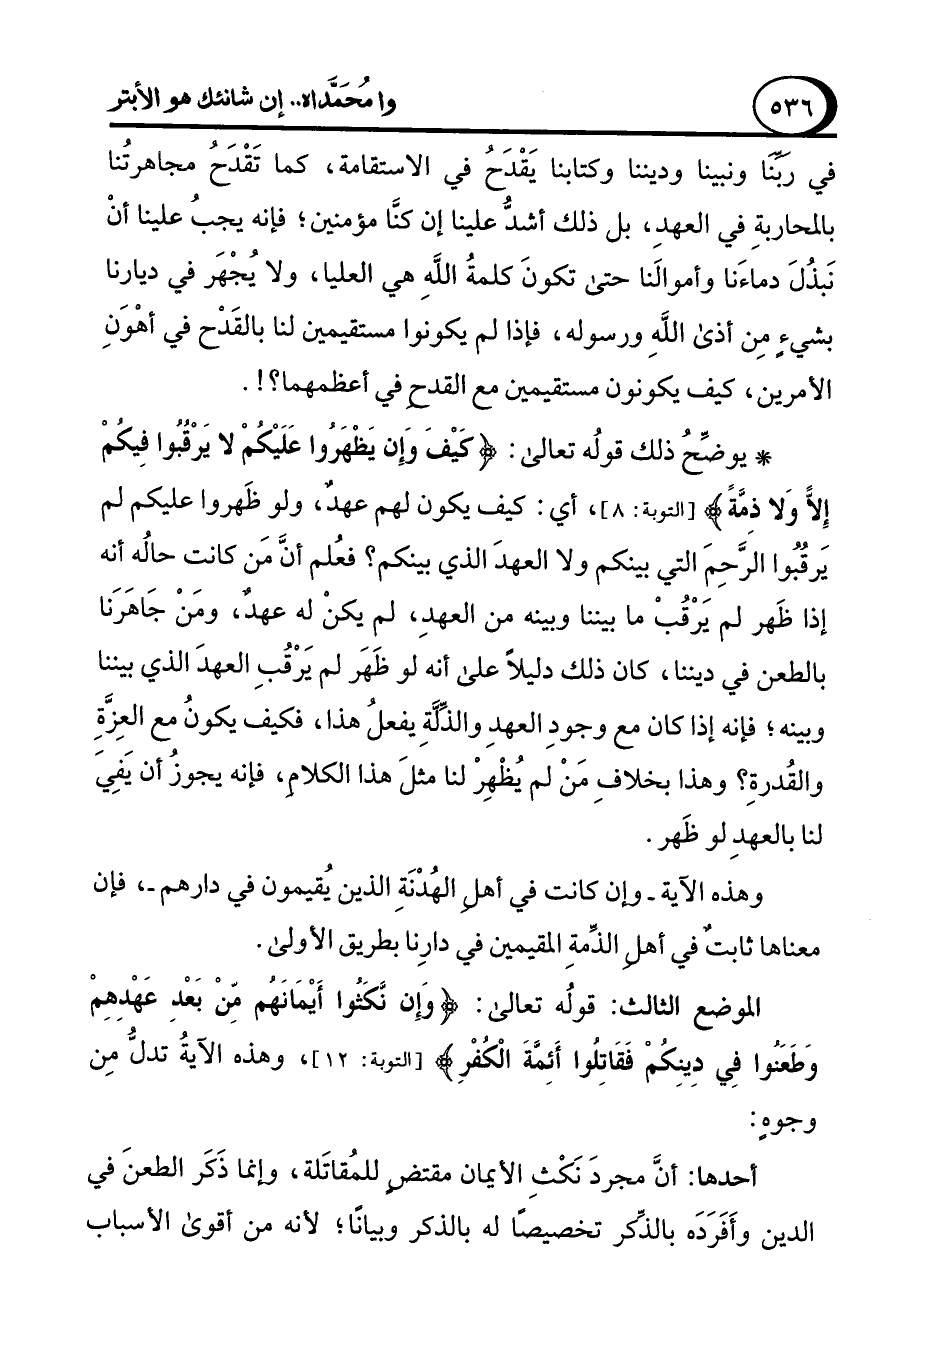 ٥٣٦
وا مُحَمَّداه.. إن شانئك هو الأبتر
في رَبِّنَا ونبينا وديننا وكتابنا يَقْدَحُ في الاستقامة، كما تَقْدَحُ مجاهرتُنا
بالمحاربةِ في العهدِ، بل ذلك أشدُّ علينا إن كنَّا مؤمنين؛ فإنه يجبُ علينا أنْ
نَبذُلَ دماءَنا وأموالَنا حتىٰ تكونَ كلمةُ اللَّهِ هي العليا، ولا يُجْهَر في ديارنا
بشيءٍ مِن أذىٰ اللَّهِ ورسوله، فإذا لم يكونوا مستقيمين لنا بالقَدْح في أهوَنِ
الأمرين، كيف يكونون مستقيمين مع القدحِ في أعظمهما؟!.
* يوضِّحُ ذلك قولُه تعالىٰ: ﴿ كَيْفَ وَإِن يَظْهَرُوا عَلَيْكُمْ لا يَرْقُبُوا فِيكُمْ
إِلاًّ وَلا ذِمَّةً ﴾ [التوبة: ٨]، أي: كيف يكون لهم عهدٌ، ولو ظَهروا عليكم لم
يَرقُبُوا الرَّحِمَ التي بينكم ولا العهدَ الذي بينكم؟ فعُلم أنَّ مَن كانت حالُه أنه
إذا ظَهر لم يَرْقُبْ ما بيننا وبينه من العهدِ، لم يكنْ له عهدٌ، ومَنْ جَاهَرَنا
بالطعن في ديننا، كان ذلك دليلاً علىٰ أنه لو ظَهَر لم يَرْقُبِ العهدَ الذي بيننا
وبينه؛ فإنه إذا كان مع وجودِ العهدِ والذِّلَّةِ يفعلُ هذا، فكيف يكونُ مع العِزَّةِ
والقُدرةِ؟ وهذا بخلافِ مَنْ لم يُظْهِرْ لنا مثلَ هذا الكلامِ، فإنه يجوزُ أن يَفِيَ
لنا بالعهدِ لو ظَهر.
وهذه الآية ـ وإن كانت في أهلِ الهُدْنَةِ الذين يُقيمون في دارهم ـ، فإن
معناها ثابتٌ في أهلِ الذِّمة المقيمين في دارِنا بطريق الأولىٰ.
الموضع الثالث: قولُه تعالىٰ: ﴿ وَإِن نَّكَثُوا أَيْمَانَهُم مِّنْ بَعْدِ عَهْدِهِمْ
وَطَعَنُوا فِي دِينِكُمْ فَقَاتِلُوا أَئِمَّةَ الْكُفْرِ ﴾ [التوبة: ١٢]، وهذه الآيةُ تدلُّ مِن
وجوهٍ:
أحدها: أنَّ مجردَ نَكْثِ الأيمان مقتضٍ للمُقاتَلة، وإنما ذَكَر الطعنَ في
الدين وأَفَرَدَه بالذِّكر تخصيصًا له بالذكر وبيانًا؛ لأنه من أقوىٰ الأسباب